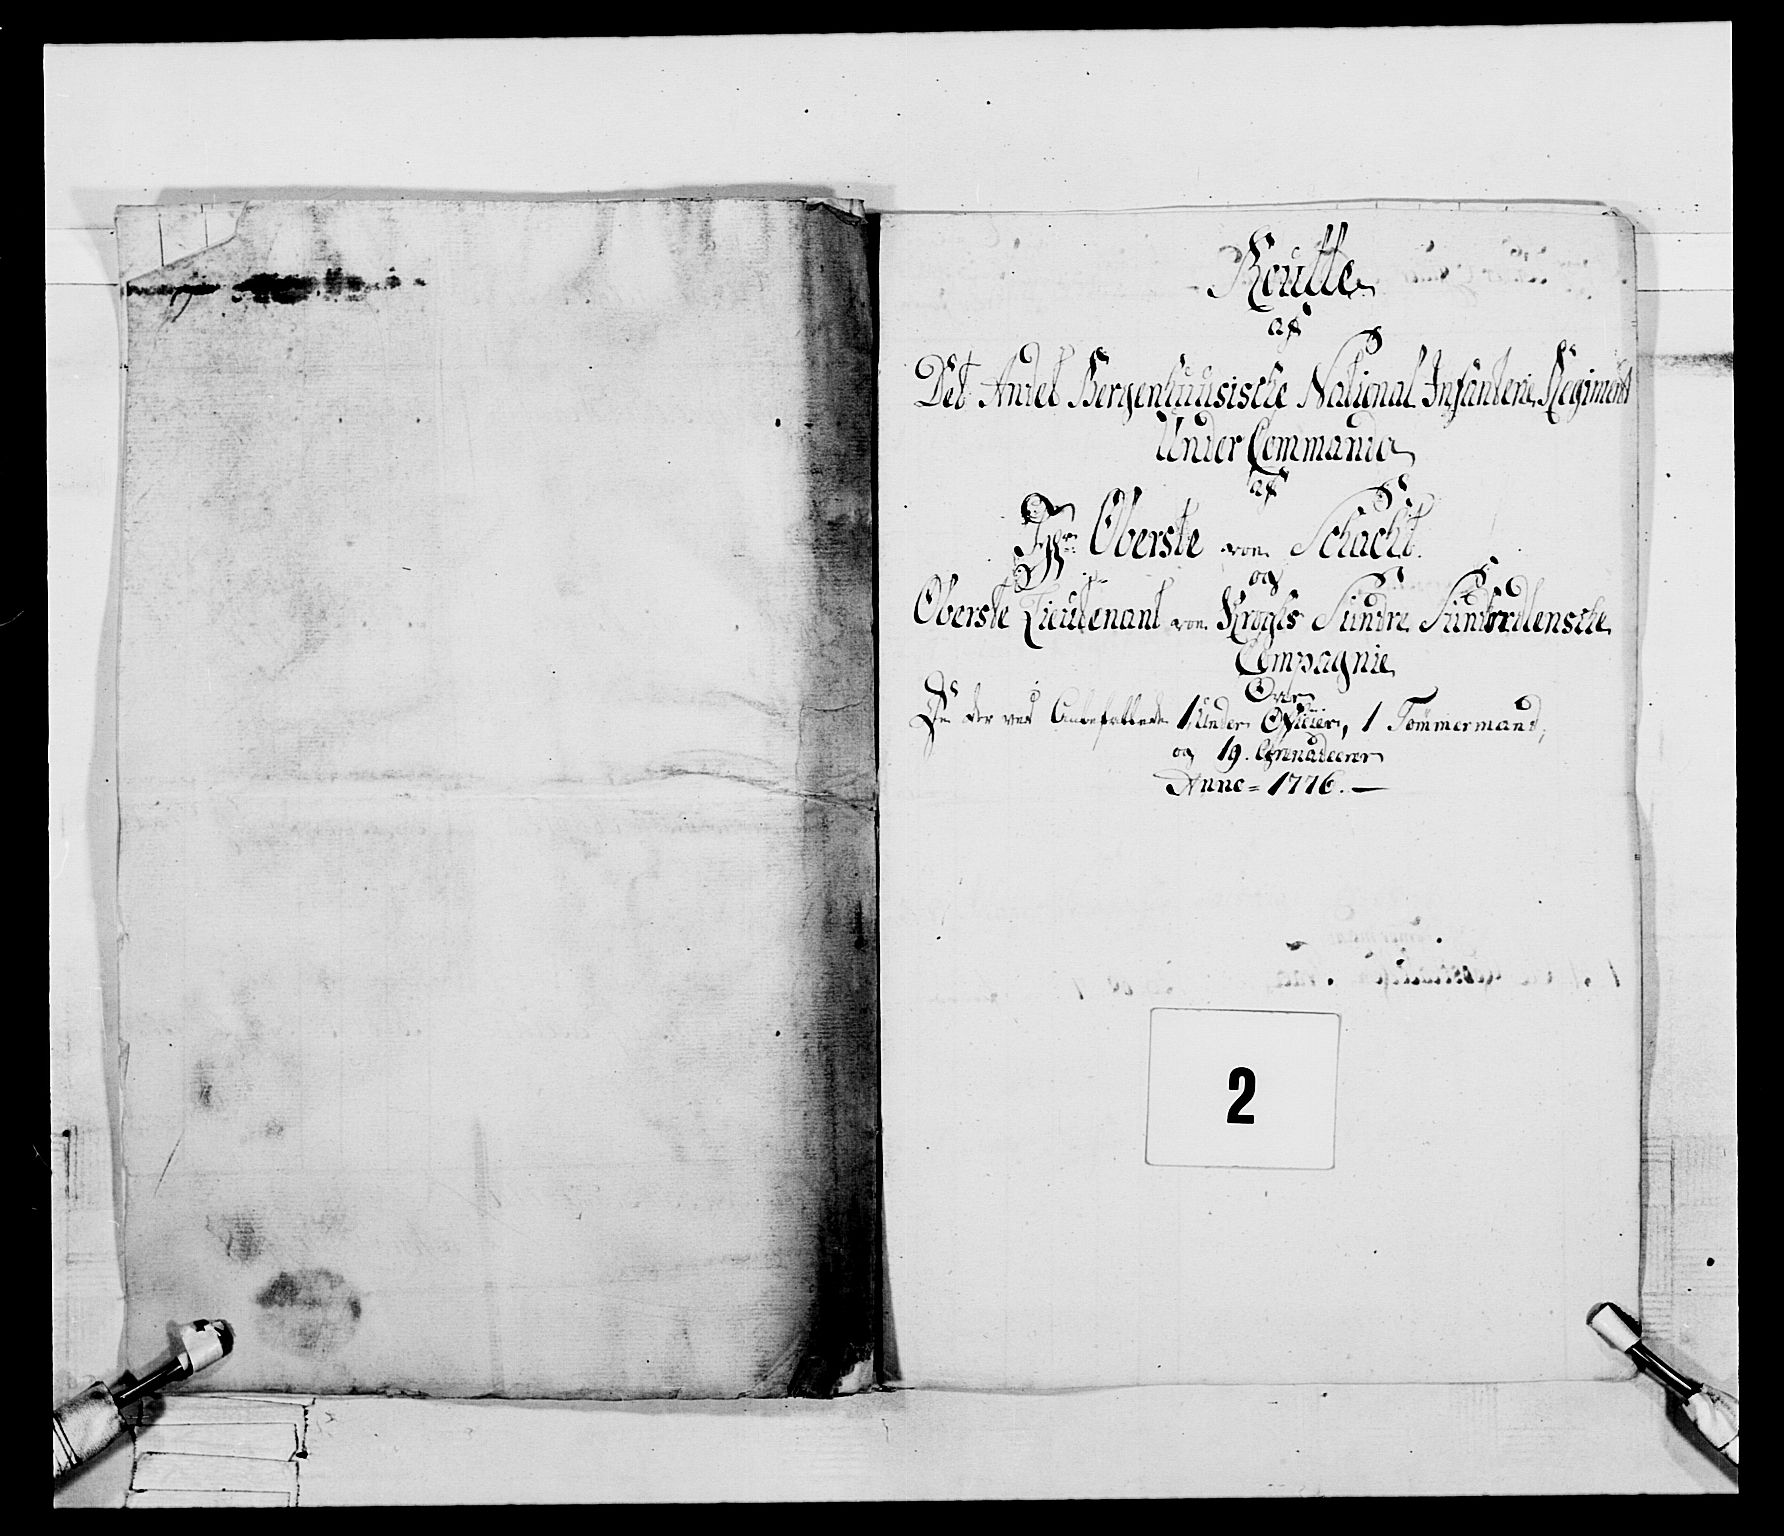 Roulle
af
Det Andet Bergenhuusische National Infanterie Regiment
Under Commando
af
Hr: Oberste von Schacht.
og
Oberste Lieutenant von Kroghs Sündre Sündhordlensche
Compagnie
Over
De der ved Anbefallede 1 Under Officier, 1 Tømmermand,
og 19. Grenadeerer
Anno = 1776. —
2